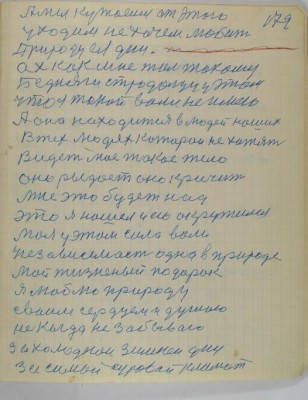 179
А мы кутаемся от этого
уходим не хочем любит
Природу ея дни.
Ах как мне тол такому
Бедняги страдальцу этом
что я такой воли не имею
А она находится в людях наших
В тех людях которои не хотят
Видеть мое такое тело
оно рыдает оно кричит
мне это будет над
это я нашел и его окружился
моя у этом сила воли
независимост одна в природе
мой жизненый подарок
Я люблю природу
своим сердцем и душою
некогда не забываю
За холоднои зимнеи дни
За самой суровай климат